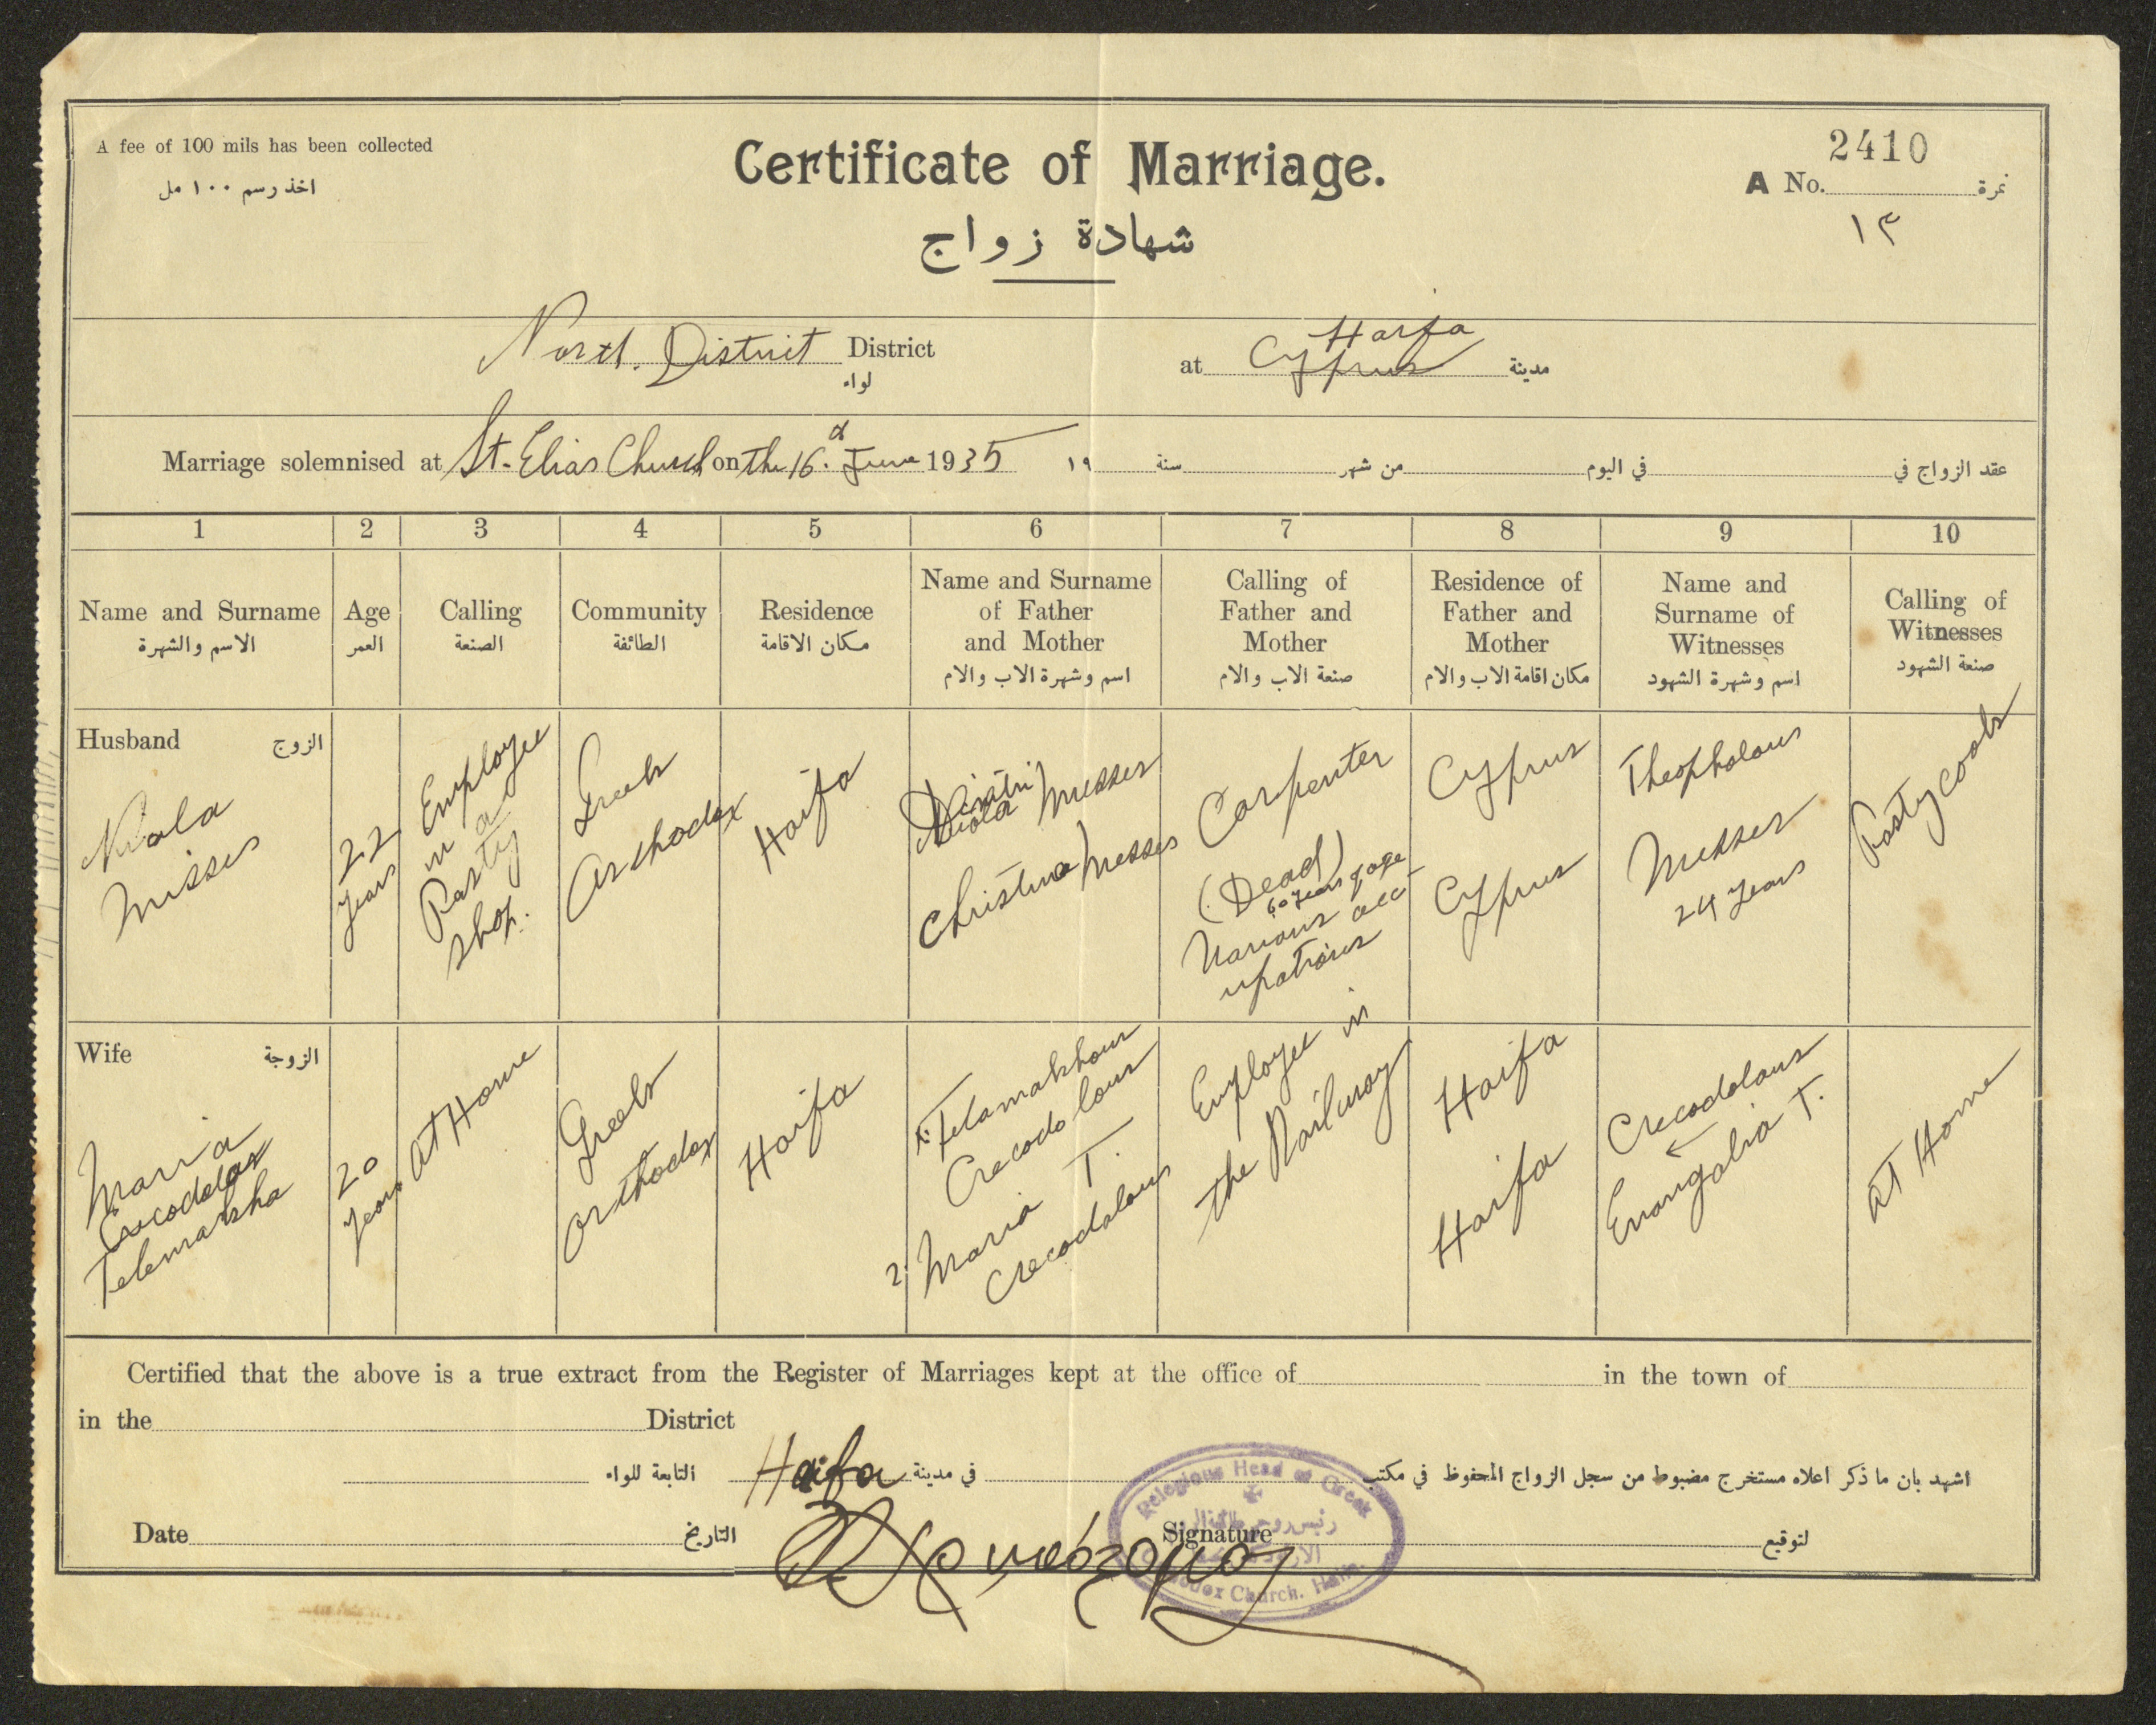 A fee of 100 mils has been collected
اخذ رسم ١٠٠ مل
Certificate of Marriage.
شهادة زواج
2410
A No. نمرة
١٣
North. District District
لواء
Haifa
at Cyprus مدينة
Marriage solemnised at St. Elias Church on the 16th June 1935 عقد الزواج في في اليوم من شهر سنة ١٩
1 2 3 4 5 6 7 8 9 10
Name and Surname
الاسم والشهرة
Age
العمر
Calling
الصنعة
Community
الطائفة
Residence
مكان الاقامة
Name and Surname
of Father
and Mother
اسم وشهرة الاب والام
Calling of
Father and
Mother
صنعة الاب والام
Residence of
Father and
Mother
مكان اقامة الاب والام
Name and
Surname of
Witnesses
اسم وشهرة الشهود
Calling of
Witnesses
صنعة الشهود
Husband الزوج
Nicola
Misses
22
years
Employee
in a
Pasty
shop.
Greek
Orthodox
Haifa
Dimitri Messes
Christina Messes
Carpenter
(Dead)
60 years of age
Various occ
upations
Cyprus
Cyprus
Theopholous
Messes
24 years
Pastycook
Wife الزوجة
Maria
Crecodolos
Telemaksha
20
years
At Home
Greek
Orthodox
Haifa
1. Telamakhous
Crecodolous
2. Maria T.
Crecodolous
Employee in
the Railway
Haifa
Haifa
Crecodolous
Evangalia T.
At Home
Certified that the above is a true extract from the Register of Marriages kept at the office of in the town of
in the District
اشهد بان ما ذكر اعلاه مستخرج مضبوط من سجل الزواج المحفوظ في مكتب في مدينة Haifa التابعة للواء
Date التاريخ
Signature لتوقيع
Relegious Head of Greek
Orthodox Church. Haifa.